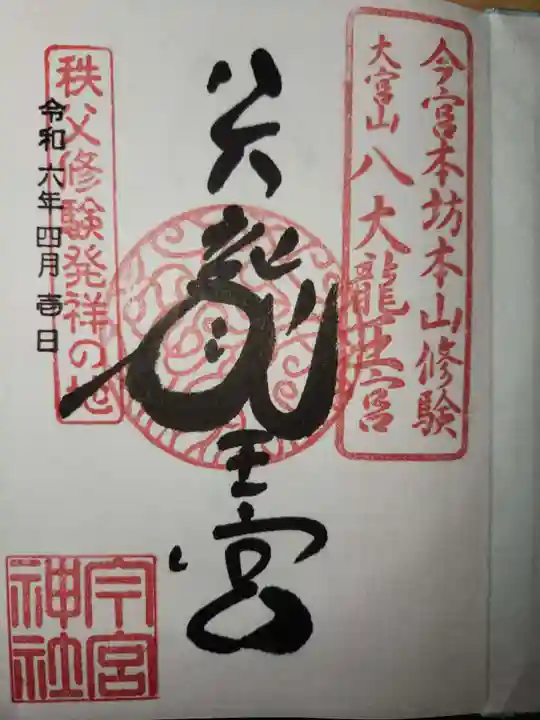 今宮本坊本山修験
大宮山八大龍王宮
八大龍王宮
秩父修験発祥の地
令和六年四月壱日
今宮
神社